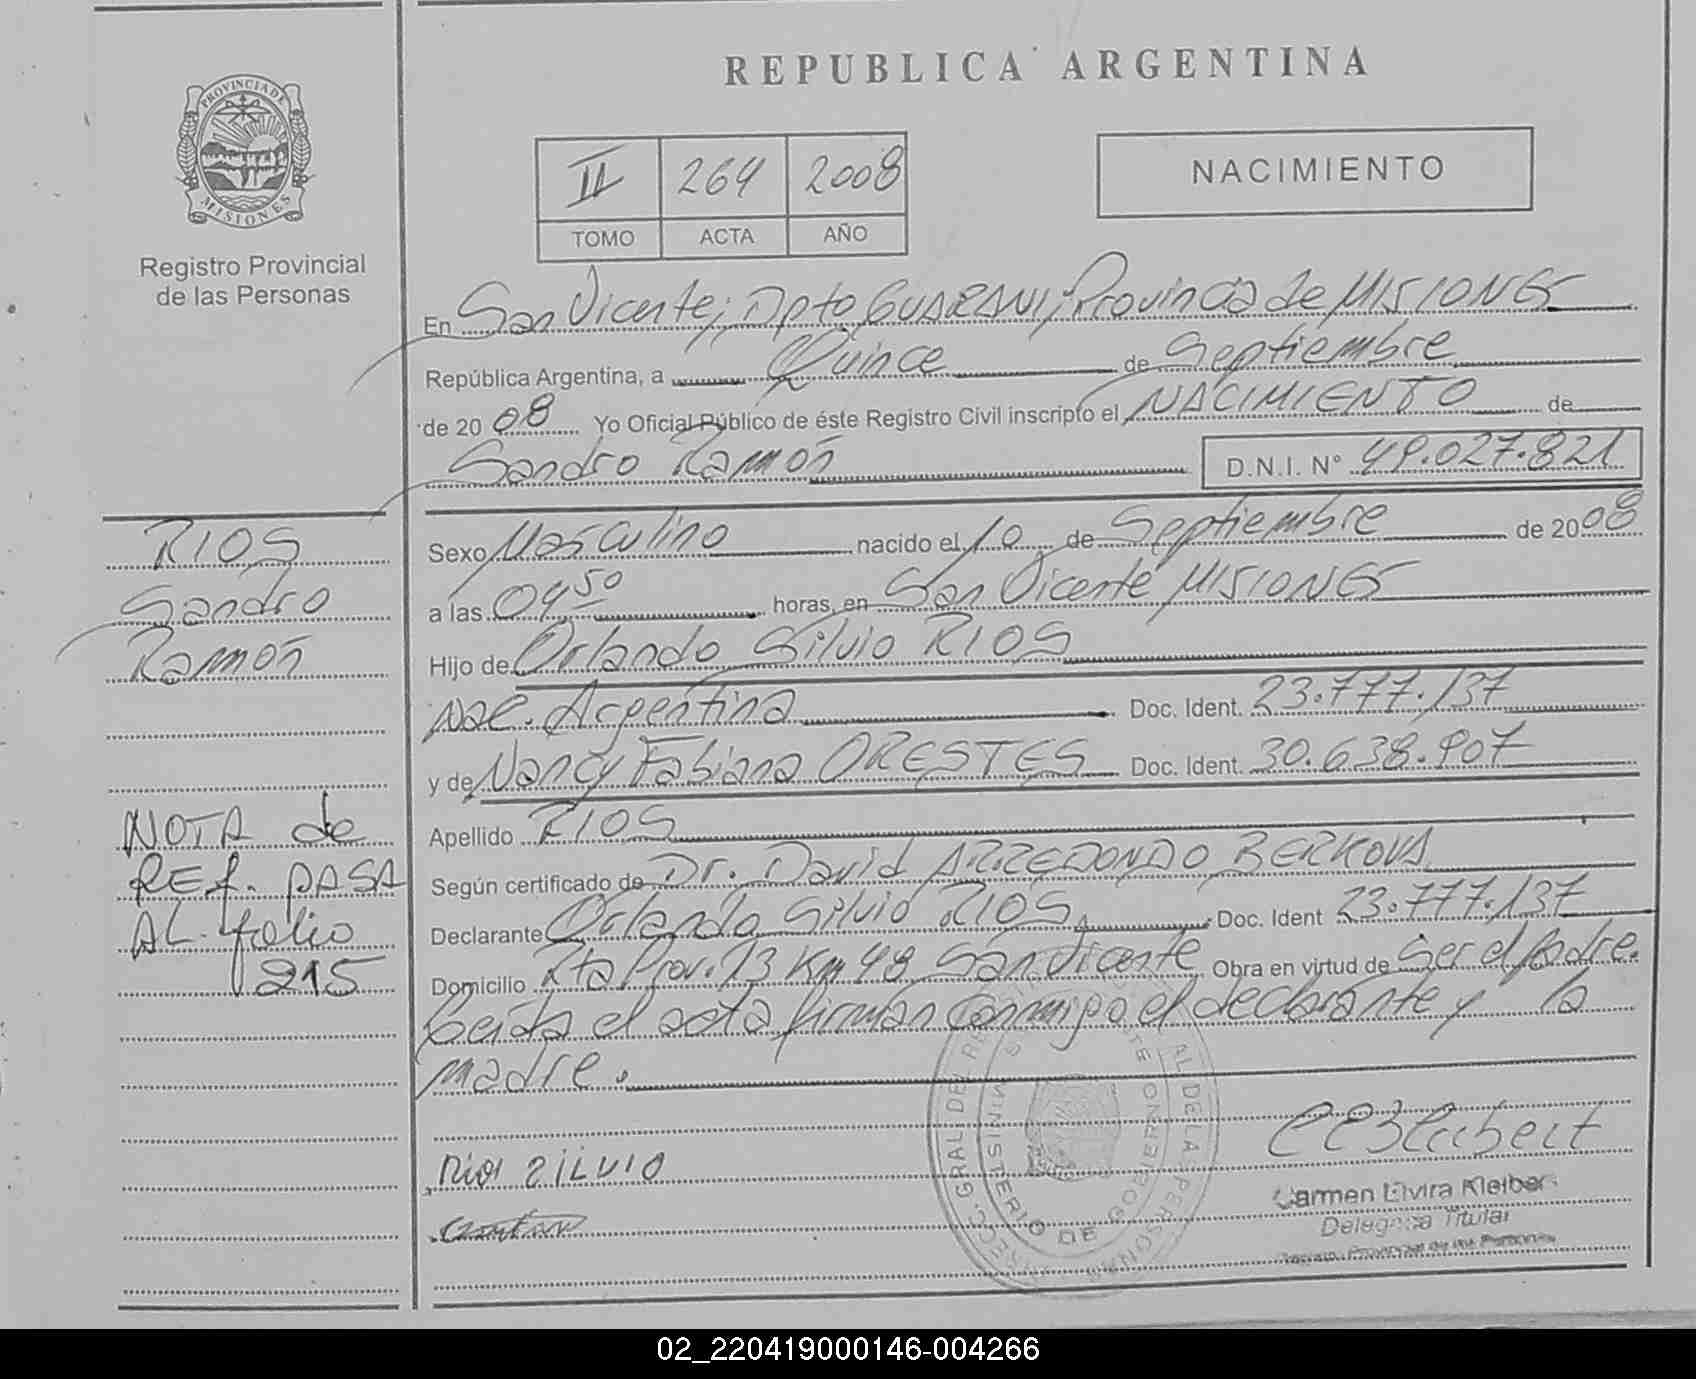 REPUBLICA ARGENTINA
PROVINCIA DE
MISIONES
Registro Provincial
de las Personas
II 264 2008
TOMO ACTA AÑO
NACIMIENTO
En San Vicente; Dpto GUARANI; Provincia de MISIONES
República Argentina, a Quince de Septiembre
de 2008 Yo Oficial Público de éste Registro Civil inscripto el NACIMIENTO de
Sandro Ramón D.N.I. N° 49.027.821
RIOS
Sandro
Ramón
Sexo Masculino nacido el 10 de Septiembre de 2008
a las 04 50 horas, en San Vicente MISIONES
Hijo de Orlando Silvio RIOS
Nac. Argentina Doc. Ident. 23.777.137
y de Nancy Fabiana ORESTES Doc. Ident. 30.638.907
Apellido RIOS
Según certificado de Dr. David ARREDONDO BERKOVA
Declarante Orlando Silvio RIOS Doc. Ident 23.777.137
Domicilio Rta Prov. 13 Km 48 San Vicente Obra en virtud de Ser el Padre.
Leída el acta firman conmigo el declarante y la
madre.
NOTA de
REf. PASA
AL folio
215
Rios SILVIO
Carmen Elvira Kleiber
Delegada Titular
Registro Provincial de las Personas
MINISTERIO DE GOBIERNO
02_220419000146-004266